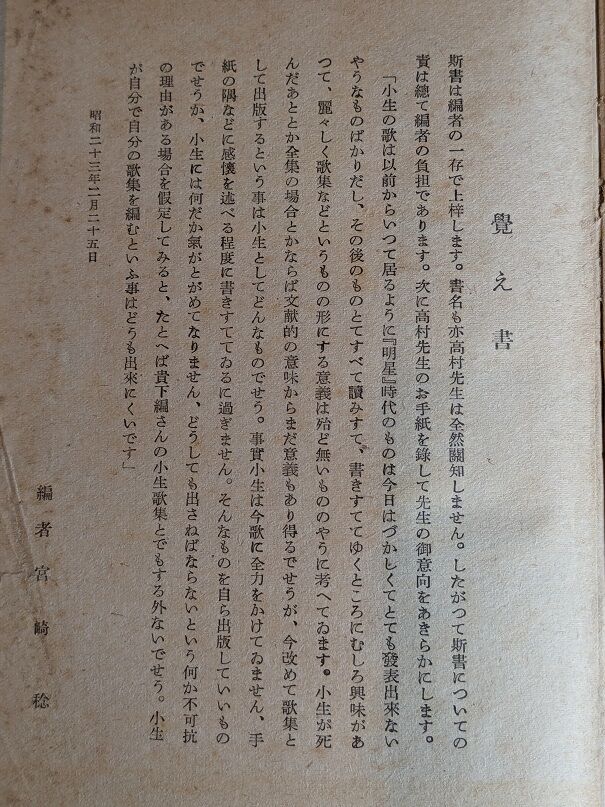 覺え書
斯書は編者の一存で上梓します。書名も亦高村先生は全然關知しません。したがつて斯書についての
責は總て編者の負担であります。次に高村先生のお手紙を錄して先生の御意向をあきらかにします。
「小生の歌は以前からいつて居るように『明星』時代のものは今日はづかしくてとても發表出來ない
やうなものばかりだし、その後のものとてすべて讀みすて、書きすててゆくところにむしろ興味があ
つて、麗々しく歌集などというものの形にする意義は殆ど無いもののやうに考へてゐます。小生が死
んだあととか全集の場合とかならば文献的の意味からまだ意義もあり得るでせうが、今改めて歌集と
して出版するという事は小生としてどんなものでせう。事實小生は今歌に全力をかけてゐません、手
紙の隅などに感懷を述べる程度に書きすててゐるに過ぎません。そんなものを自ら出版していいもの
でせうか、小生には何だか氣がとがめてなりません、どうしても出さねばならないという何か不可抗
の理由がある場合を假定してみると、たとへば貴下編さんの小生歌集とでもする外ないでせう。小生
が自分で自分の歌集を編むといふ事はどうも出來にくいです」
昭和二十三年二月二十五日
編者宮崎稔